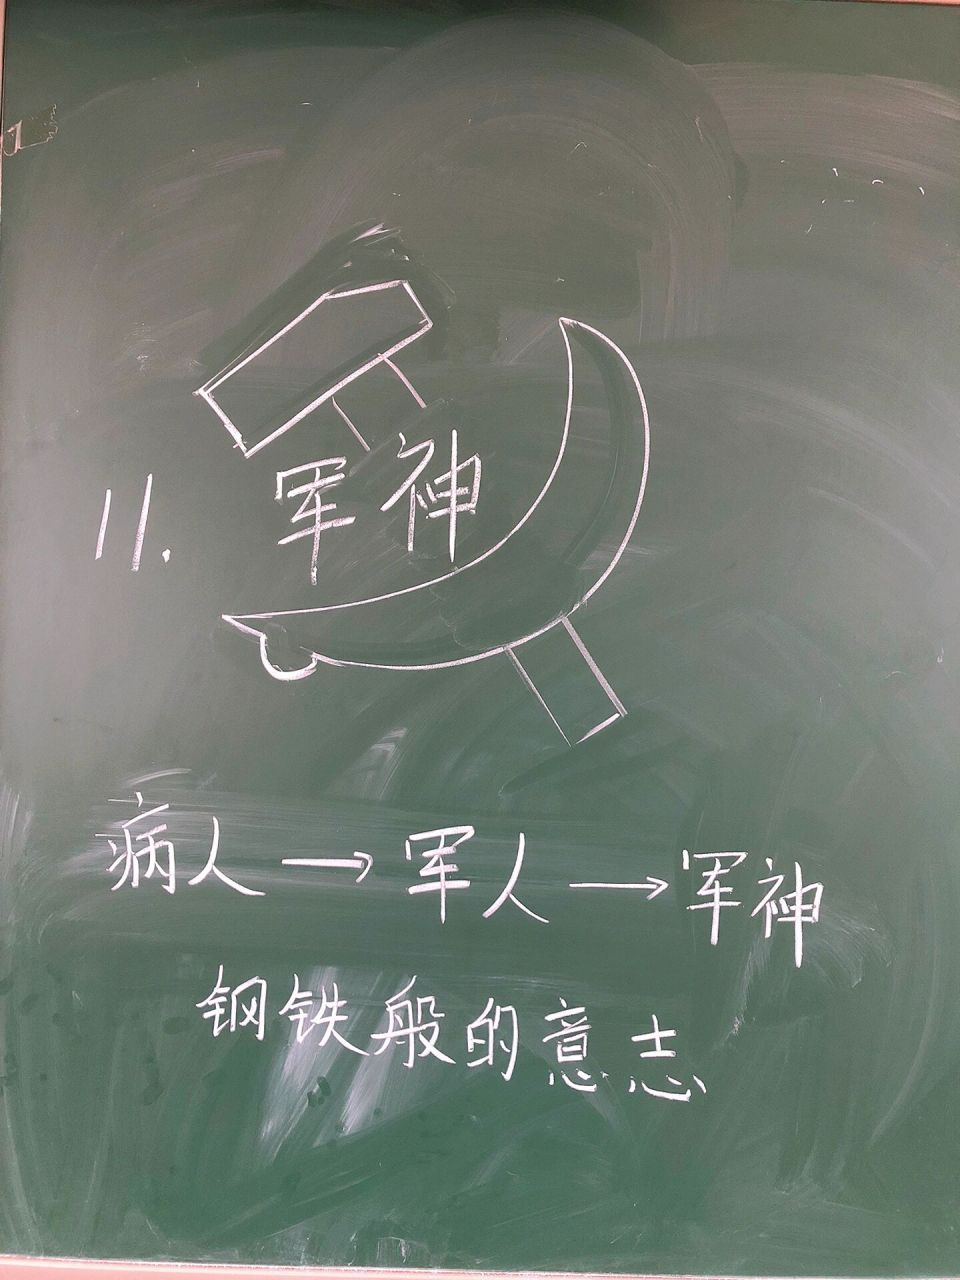 11. 军神
病人→军人→军神
钢铁般的意志